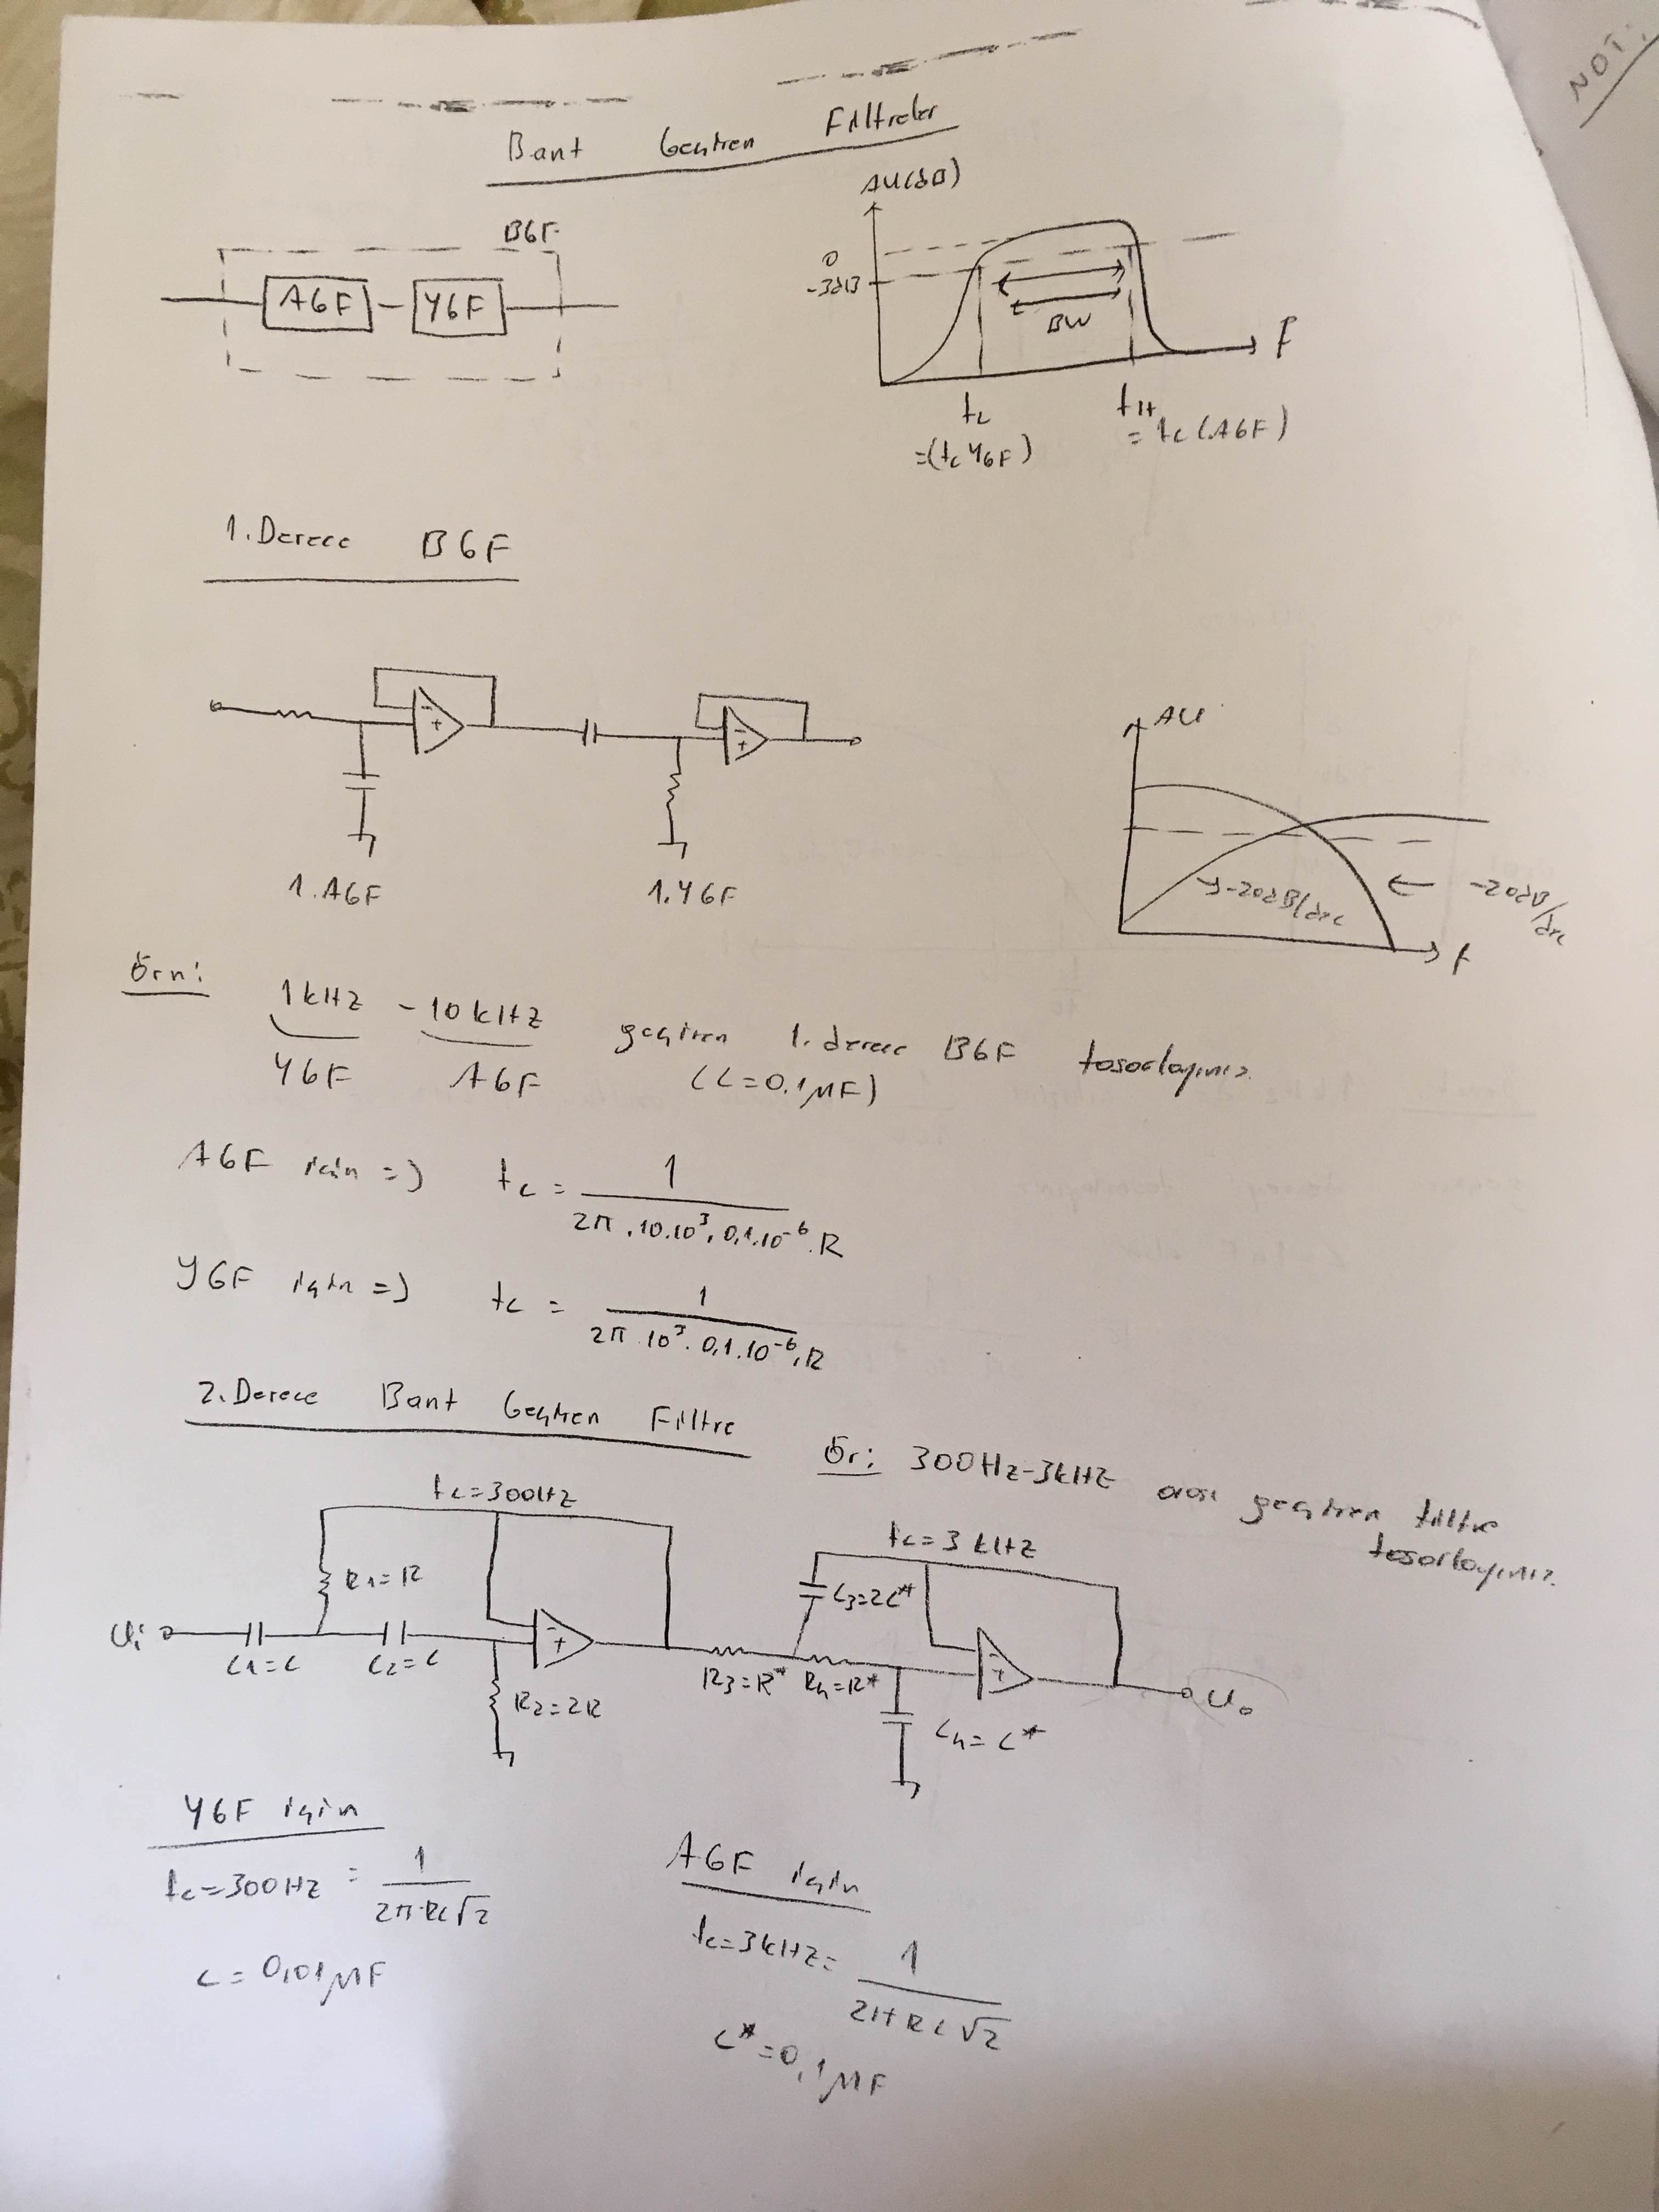 NOT:
Bant Geçiren Filtreler
BGF
AGF YGF
AU(dB)
0
-3dB
BW
F
fL
=(fc YGF)
fH
= fc (AGF)
1.Derece BGF
- +
- +
1.AGF
1.YGF
AU
-20dB/dec
-20dB/dec
f
Örn: 1kHz - 10kHz geçiren 1.derece BGF tasarlayınız.
YGF AGF (C=0.1µF)
AGF için => fc = 1 / 2π.10.10³.0,1.10⁻⁶.R
YGF için => fc = 1 / 2π.10³.0,1.10⁻⁶.R
2.Derece Bant Geçiren Filtre
Ör: 300Hz-3kHz arası geçiren filtre
tasarlayınız.
fc=300Hz
fc=3kHz
R1=R
C3=2C*
Ui
C1=C
C2=C
- +
R2=2R
R3=R*
R4=R*
+
C4=C*
Uo
YGF için
fc=300Hz = 1 / 2π.RC√2
C=0,01µF
AGF için
fc=3kHz= 1 / 2π RC√2
C*=0,1µF